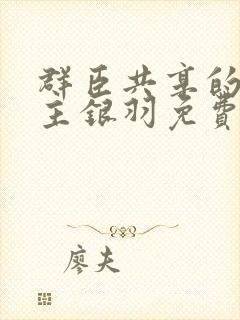 群臣共享的
主银羽免费
廖夫